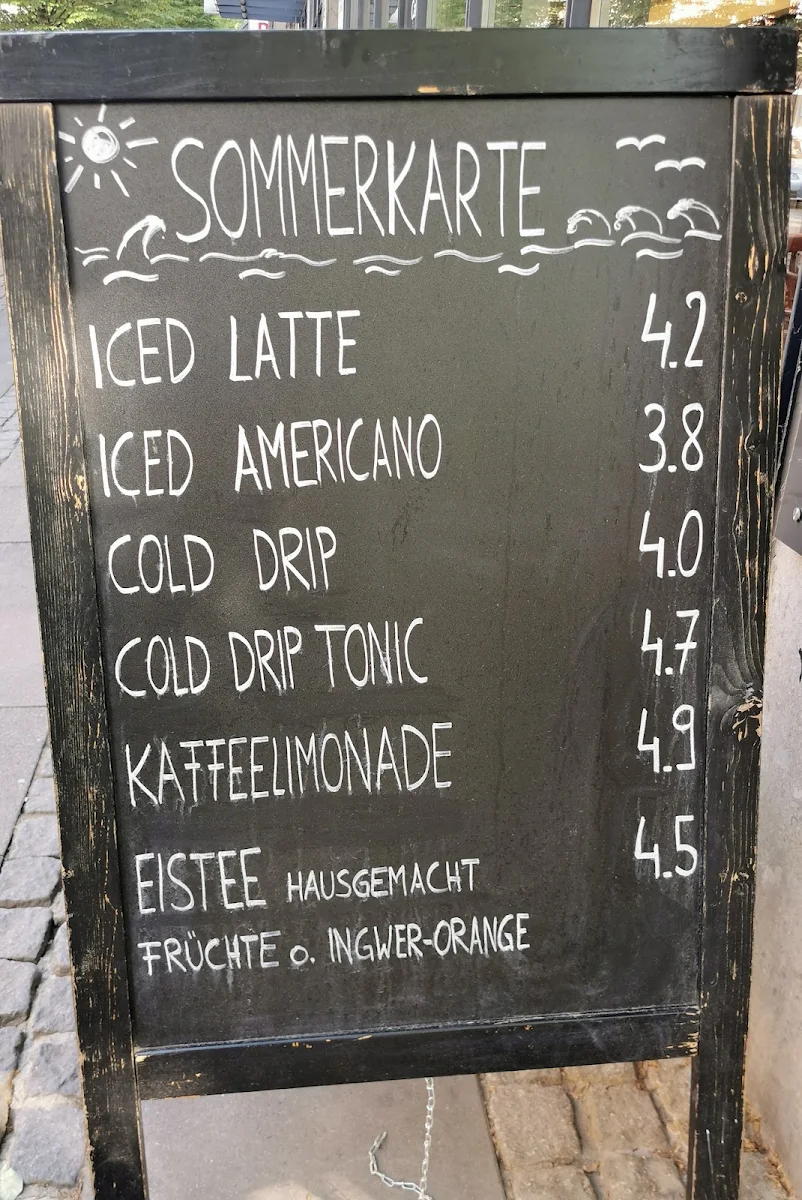 SOMMERKARTE
ICED LATTE 4.2
ICED AMERICANO 3.8
COLD DRIP 4.0
COLD DRIP TONIC 4.7
KAFFEELIMONADE 4.9
EISTEE HAUSGEMACHT 4.5
FRÜCHTE o. INGWER-ORANGE